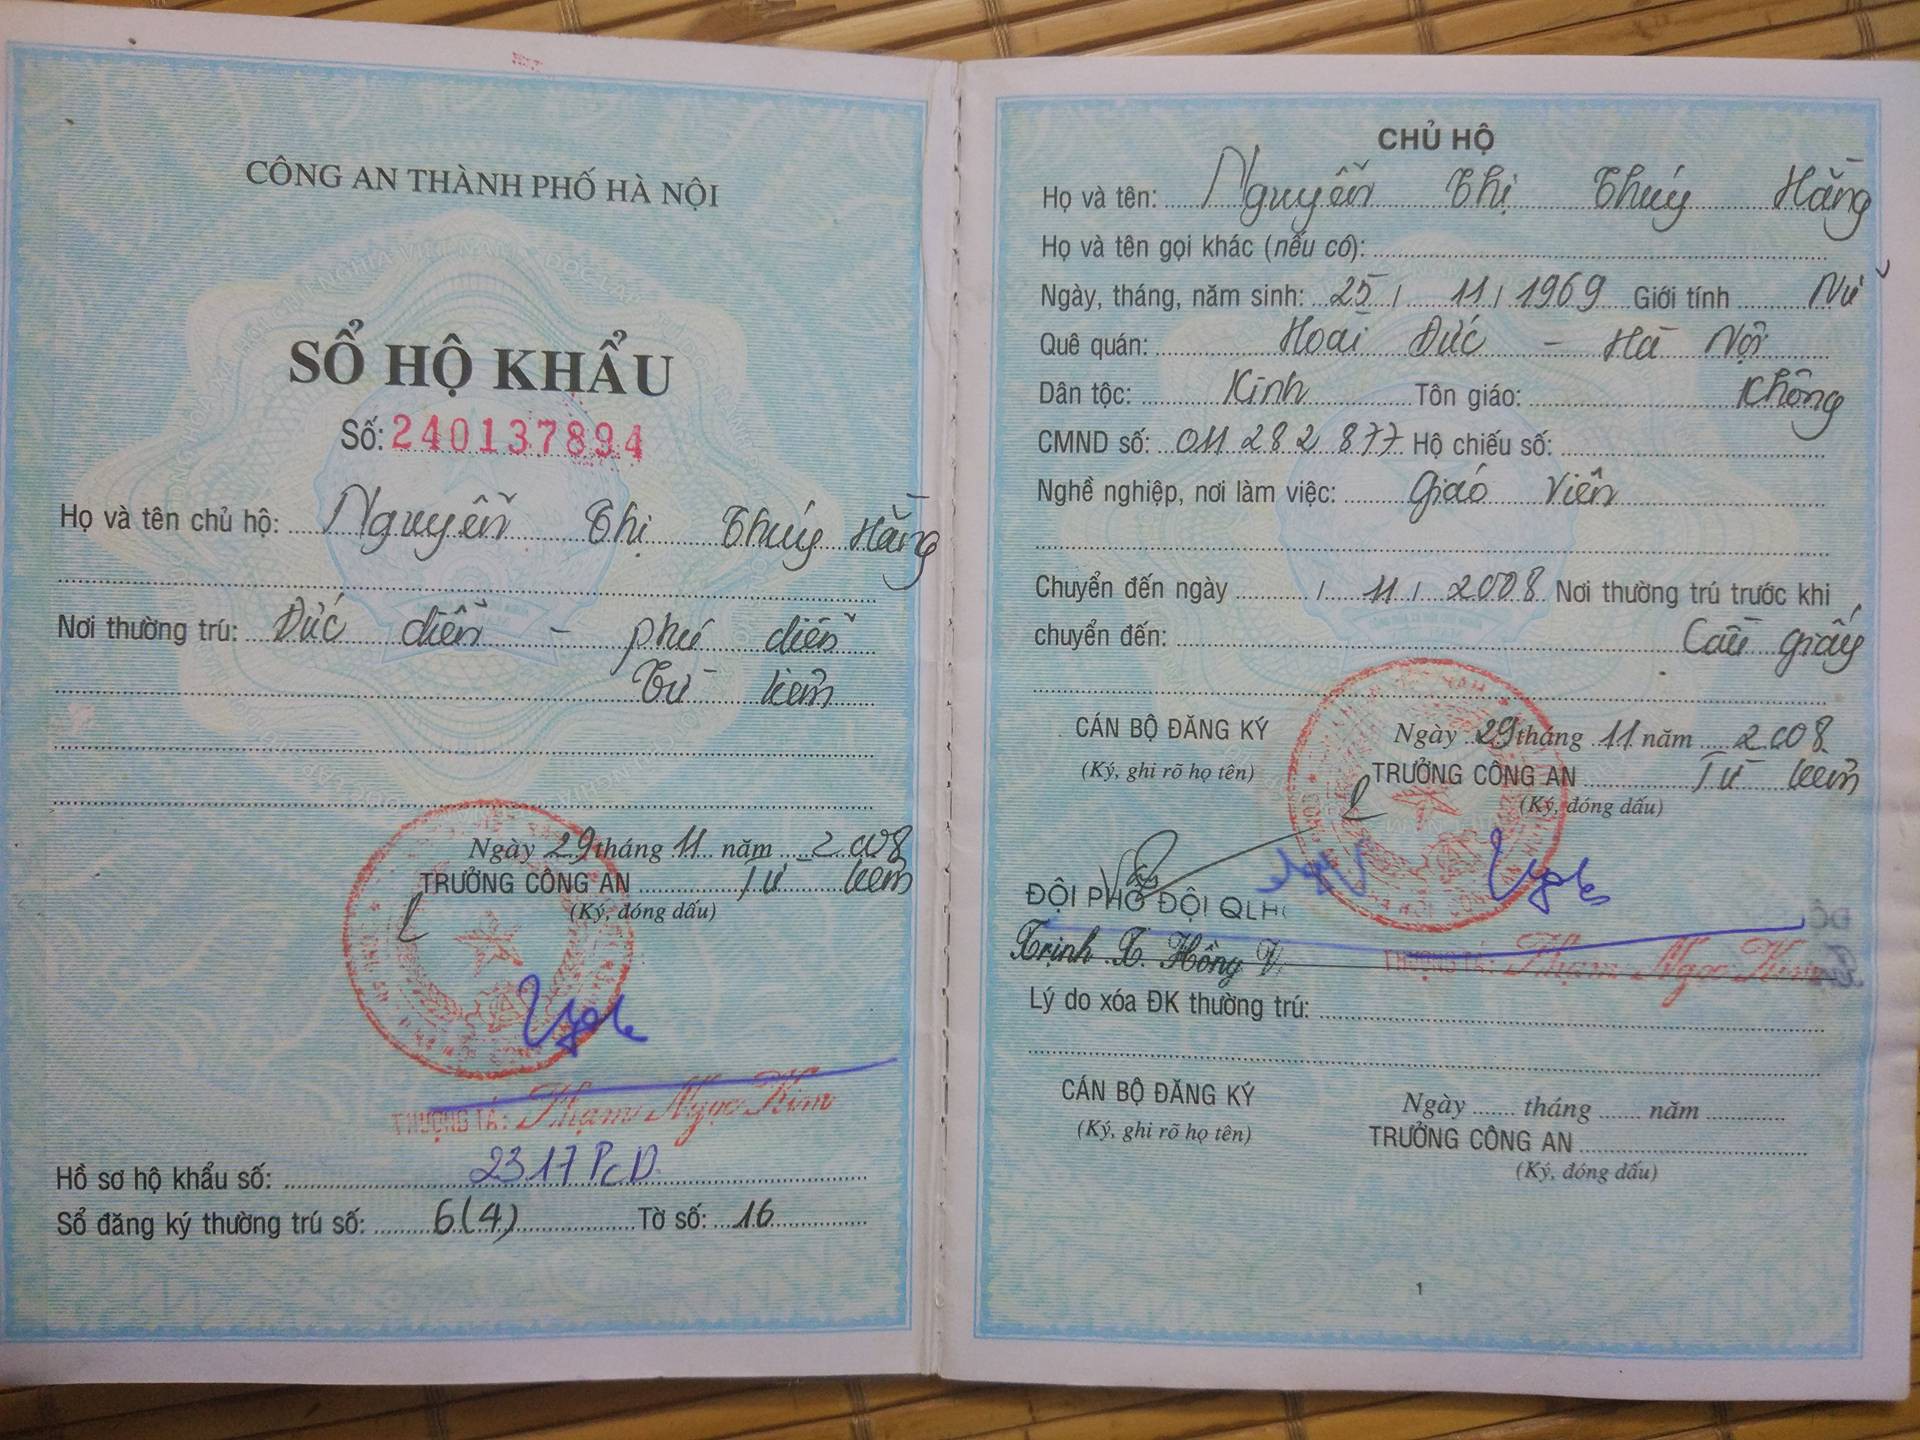 CÔNG AN THÀNH PHỐ HÀ NỘI
SỔ HỘ KHẨU
Số: 240137894
Họ và tên chủ hộ: Nguyễn Thị Thúy Hằng
Nơi thường trú: Đức diễn - phú diễn
Từ liêm
Ngày 29 tháng 11 năm 2008
TRƯỞNG CÔNG AN Từ liêm
(Ký, đóng dấu)
THƯỢNG TÁ: Phạm Ngọc Kim
Hồ sơ hộ khẩu số: 2317 PcD
Sổ đăng ký thường trú số: 6(4) Tờ số: 16
CHỦ HỘ
Họ và tên: Nguyễn Thị Thúy Hằng
Họ và tên gọi khác (nếu có):
Ngày, tháng, năm sinh: 25 / 11 / 1969 Giới tính Nữ
Quê quán: Hoài Đức - Hà Nội
Dân tộc: Kinh Tôn giáo: Không
CMND số: 011 282 877 Hộ chiếu số:
Nghề nghiệp, nơi làm việc: Giáo viên
Chuyển đến ngày / 11 / 2008 Nơi thường trú trước khi
chuyển đến: Cầu giấy
CÁN BỘ ĐĂNG KÝ
(Ký, ghi rõ họ tên)
Ngày 29 tháng 11 năm 2008
TRƯỞNG CÔNG AN Từ liêm
(Ký, đóng dấu)
ĐỘI PHÓ ĐỘI QLH
Trịnh T. Hồng
THƯỢNG TÁ: Phạm Ngọc Kim
Lý do xóa ĐK thường trú:
CÁN BỘ ĐĂNG KÝ
(Ký, ghi rõ họ tên)
Ngày ....... tháng ...... năm ............
TRƯỞNG CÔNG AN
(Ký, đóng dấu)
1